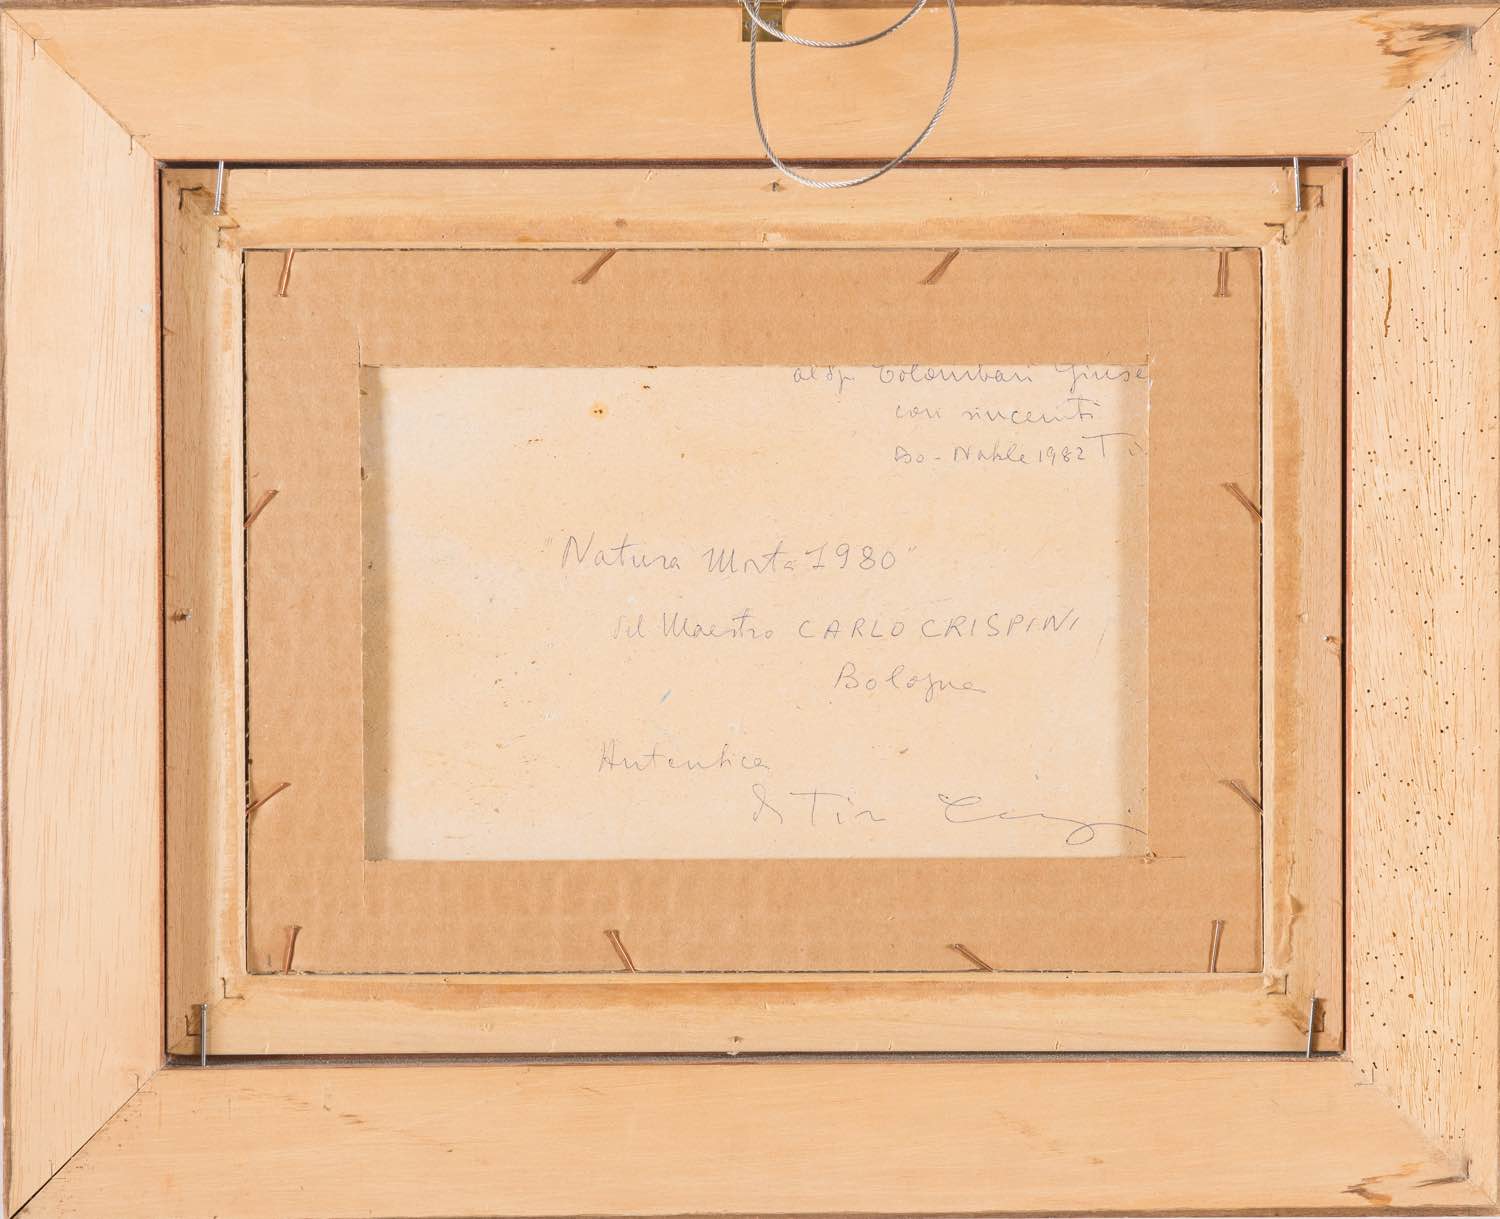 al Sig. Colombari Giuse
con
Bo - Natale 1982
"Natura Morta 1980"
del Maestro CARLO CRISPINI
Bologna
Autentica
di Tin